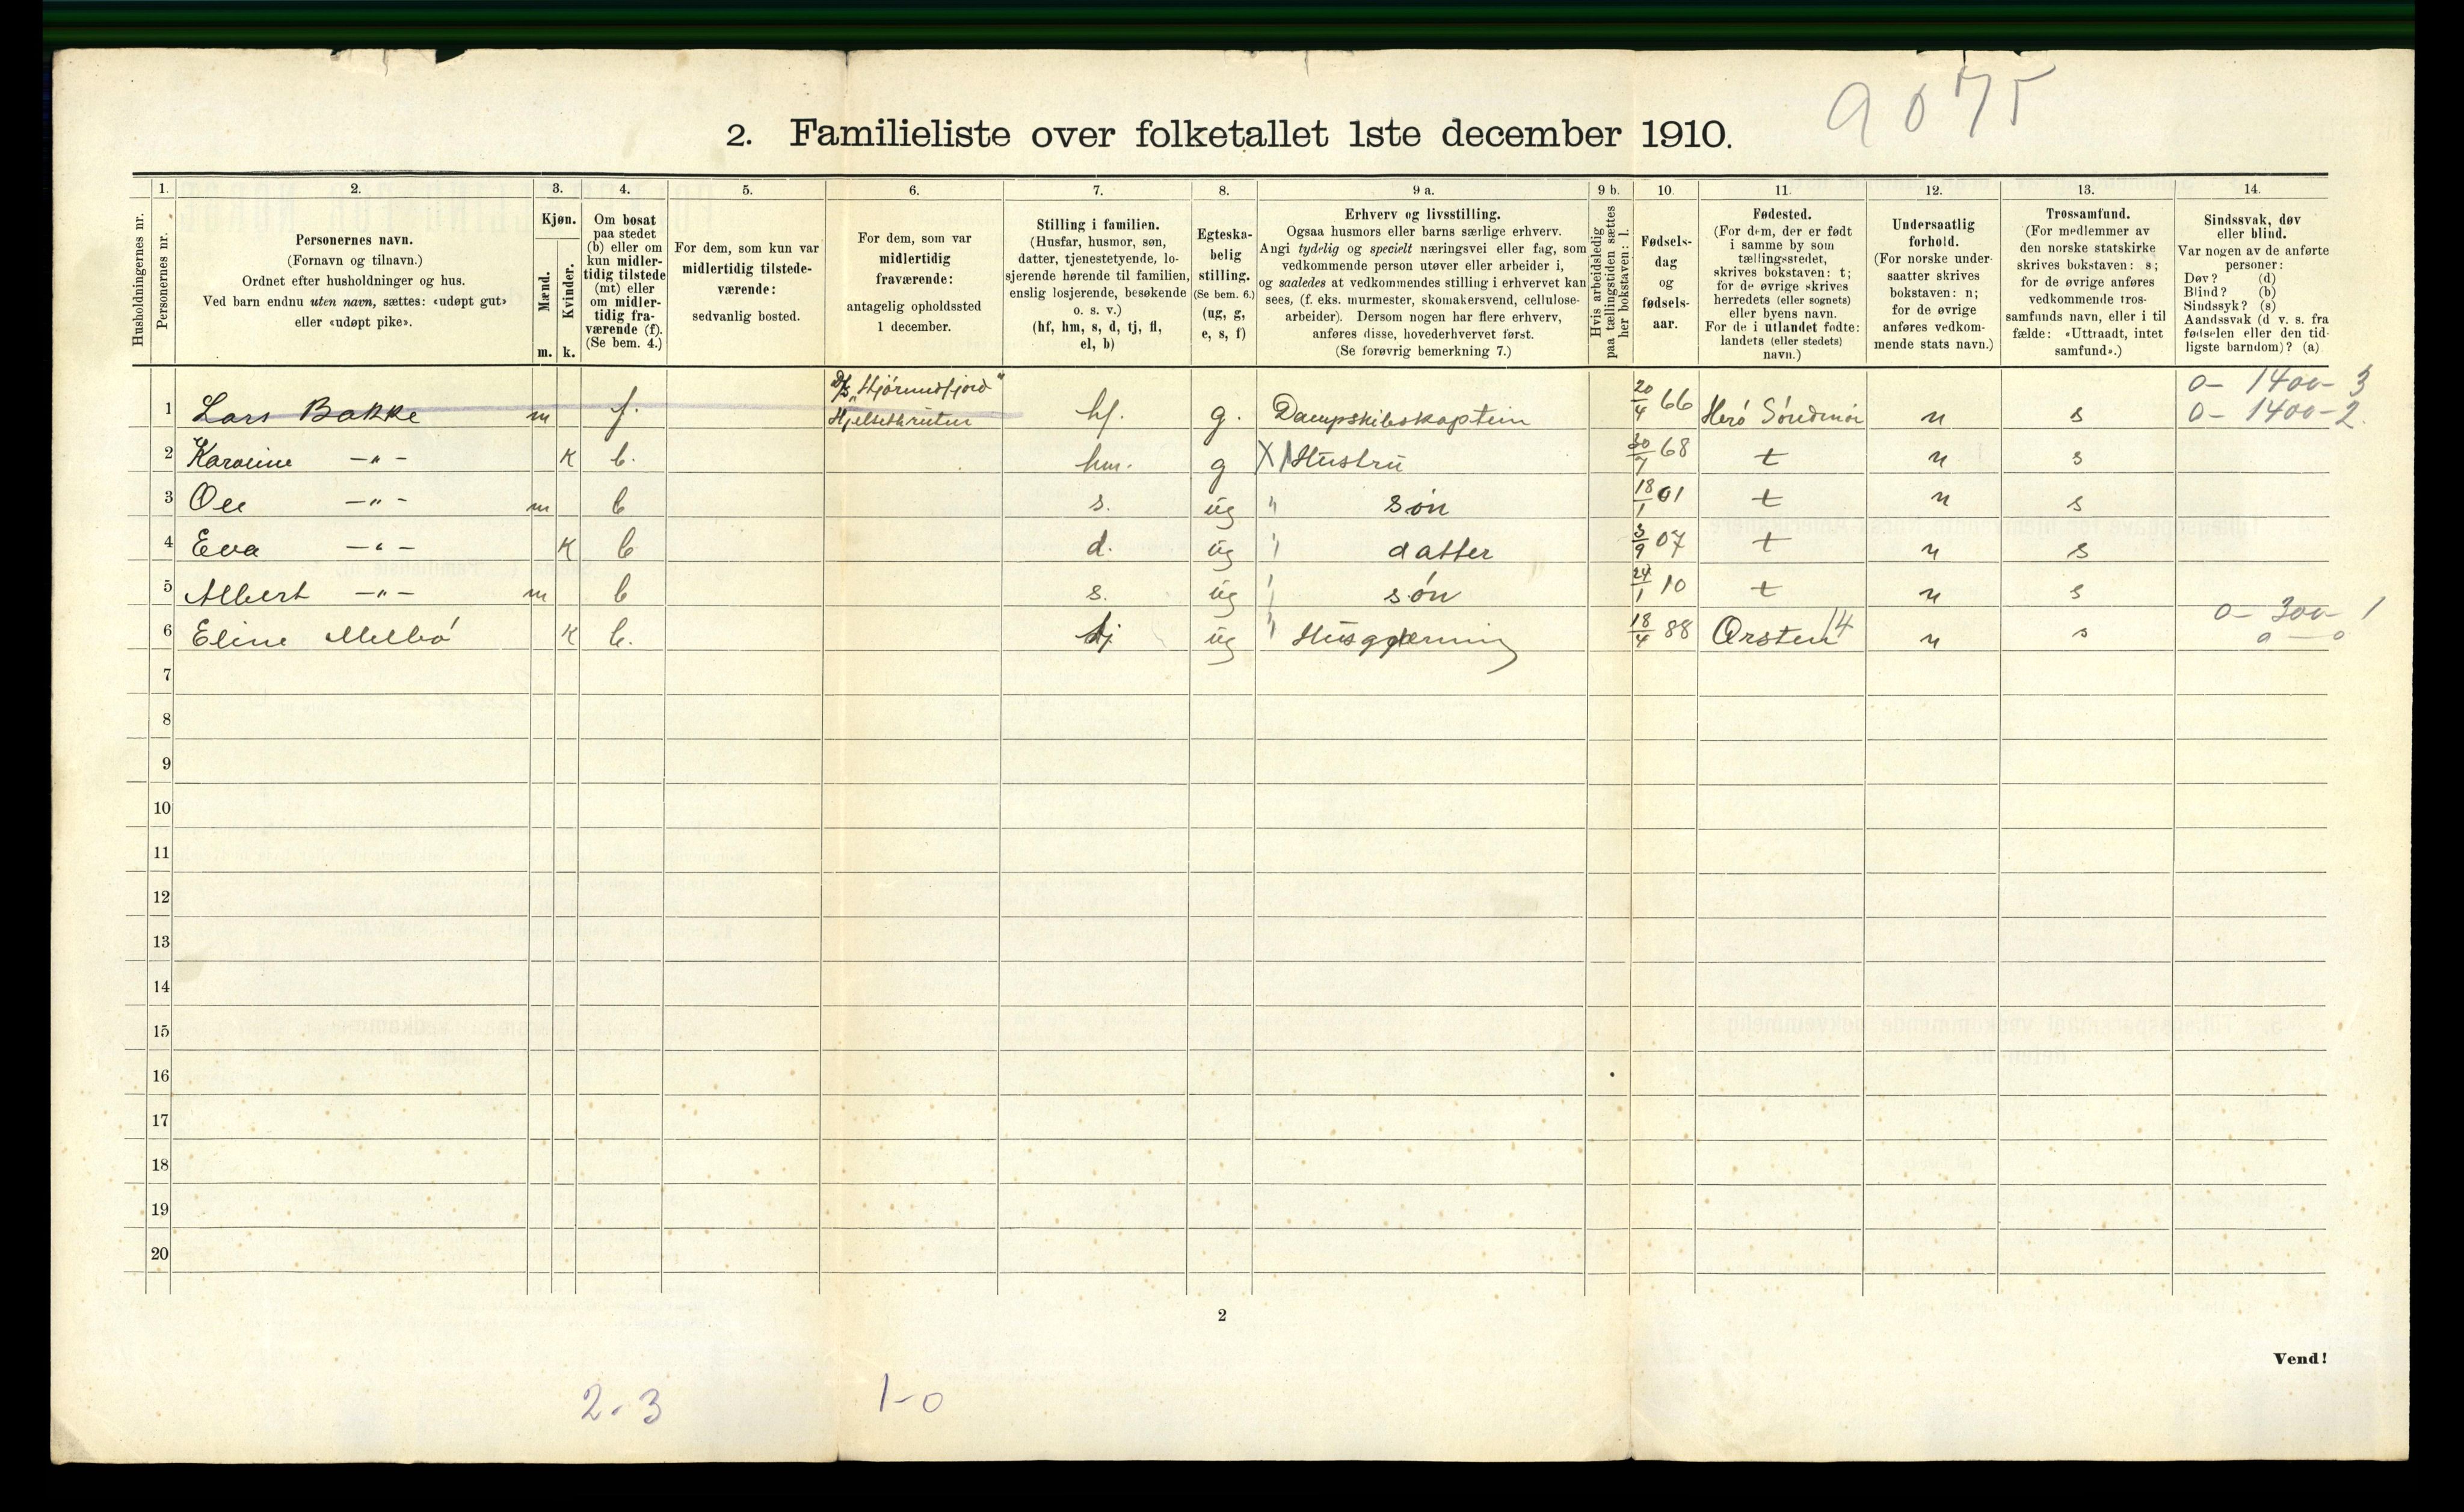 9075
2. Familieliste over folketallet 1ste december 1910.
1. 2. 3. 4. 5. 6. 7. 8. 9 a. 9 b. 10. 11. 12. 13. 14.
Husholdningernes nr.
Personernes nr.
Personernes navn.
(Fornavn og tilnavn.)
Ordnet efter husholdninger og hus.
Ved barn endnu uten navn, sættes: «udøpt gut»
eller «udøpt pike».
Kjøn.
Mænd.
Kvinder.
m. k.
Om bosat
paa stedet
(b) eller om
kun midler-
tidig tilstede
(mt) eller
om midler-
tidig fra-
værende (f).
(Se bem. 4.)
For dem, som kun var
midlertidig tilstede-
værende:
sedvanlig bosted.
For dem, som var
midlertidig
fraværende:
antagelig opholdssted
1 december.
Stilling i familien.
(Husfar, husmor, søn,
datter, tjenestetyende, lo-
sjerende hørende til familien,
enslig losjerende, besøkende
o. s. v.)
(hf, hm, s, d, tj, fl,
el, b)
Egteska-
belig
stilling.
(Se bem. 6.)
(ug, g,
e, s, f)
Erhverv og livsstilling.
Ogsaa husmors eller barns særlige erhverv.
Angi tydelig og specielt næringsvei eller fag, som
vedkommende person utøver eller arbeider i,
og saaledes at vedkommendes stilling i erhvervet kan
sees, (f. eks. murmester, skomakersvend, cellulose-
arbeider). Dersom nogen har flere erhverv,
anføres disse, hovederhvervet først.
(Se forøvrig bemerkning 7.)
Hvis arbeidsledig
paa tællingstiden sættes
her bokstaven: l.
Fødsels-
dag
og
fødsels-
aar.
Fødested.
(For dem, der er født
i samme by som
tællingsstedet,
skrives bokstaven: t;
for de øvrige skrives
herredets (eller sognets)
eller byens navn.
For de i utlandet fødte:
landets (eller stedets)
navn.)
Undersaatlig
forhold.
(For norske under-
saatter skrives
bokstaven: n;
for de øvrige
anføres vedkom-
mende stats navn.)
Trossamfund.
(For medlemmer av
den norske statskirke
skrives bokstaven: s;
for de øvrige anføres
vedkommende tros-
samfunds navn, eller i til
fælde: «Uttraadt, intet
samfund».)
Sindssvak, døv
eller blind.
Var nogen av de anførte
personer:
Døv? (d)
Blind? (b)
Sindssyk? (s)
Aandssvak (d v. s. fra
fødselen eller den tid-
ligste barndom)? (a)
D/S „Hjørundfjord" 0- 1400- 3
1 Lars Bakke m f. hf. g. Dampskibskaptein 20/4 66 Herø Søndmør n s 0- 1400-2.
2 Karoline -„- k b. hm. g X Hustru 30/7 68 t n s
3 Ole -„- m b s. ug „ søn 18/1 01 t n s
4 Eva -„- k b d. ug „ datter 3/9 07 t n s
5 Albert -„- m b s. ug „ søn 24/1 10 t n s
0- 300- 1
6 Eline Melbø k b. tj ug „ Husgjerning 18/4 88 Ørsten 14 n s 0 - 0
7
8
9
10
11
12
13
14
15
16
17
18
19
20
2
Vend!
2-3 1-0